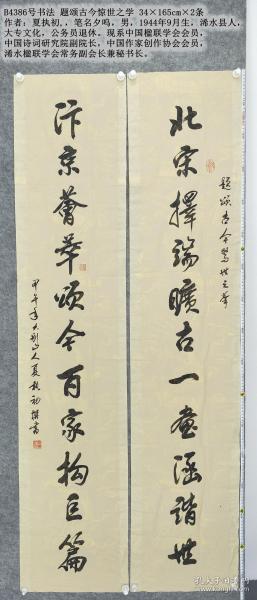 B4386号书法 题颂古今惊世之学 34×165cm×2条
作者：夏执初,，笔名夕鸣，男，1944年9月生，浠水县人，
大专文化，公务员退休。现系中国楹联学会会员，
中国诗词研究院副院长，中国作家创作协会会员，
浠水楹联学会常务副会长兼秘书长。
题颂古今惊世之举
北宋择端旷古一画涵谐世
汴京荟萃颂今百家构巨篇
甲午年大别山人夏执初撰书